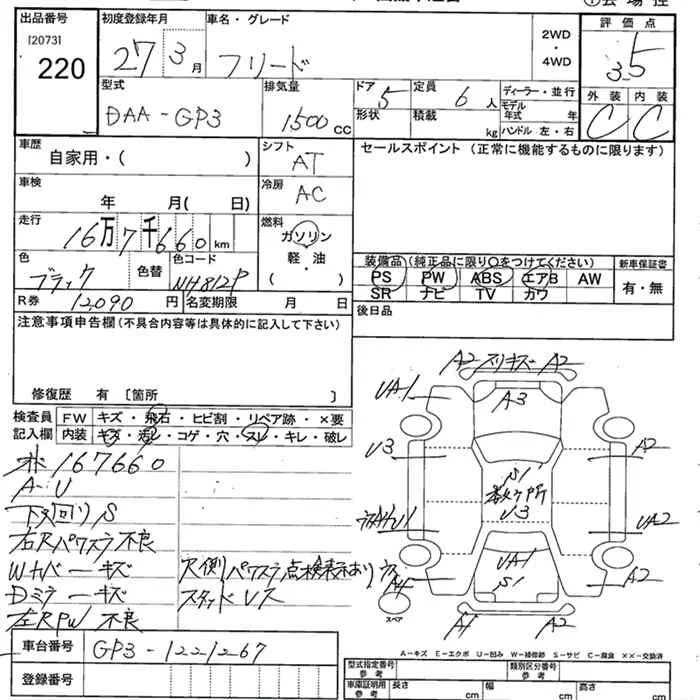 出品番号
[2073]
220
初度登録年月
27 3月
車名・グレード
フリード
2WD
・
4WD
評価点
3.5
外装 内装
C C
型式
DAA-GP3
排気量
1500cc
ドア
5
形状
定員
6人
積載
kg
ディーラー・並行
モデル
年式 年
ハンドル 左・右
車歴
自家用・( )
シフト
AT
セールスポイント (正常に機能するものに限ります)
車検
年 月( 日)
冷房
AC
走行
16万7千660km
燃料
ガソリン
軽・油
( )
色
ブラック
色替
色コード
NH812P
装備品(純正品に限り○をつけてください)
PS PW ABS エアB AW
SR ナビ TV カワ
新車保証書
有・無
R券 12,090円
名変期限 月 日
後日品
注意事項申告欄(不具合内容等は具体的に記入して下さい)
修復歴 有 [箇所 ]
検査員
記入欄
FW キズ・飛石・ヒビ割・リペア跡・×要
内装 キズ・汚レ・コゲ・穴・スレ・キレ・破レ
167660
A-U
下回りS
右Rパワスラ不良
Wカバーキズ
Dミラーキズ
左RPW不良
R側パワスラ点検表示あり
スタッドレス
A2 スリキズ A2
UA1
A3
U3
A2
S1
数ヶ所
U3
UA2
UA1
S1
A2
A1
A2
スペア
A-キズ E-エクボ U-凹み W-補修跡 S-サビ C-腐食 ××-交換済
車台番号
GP3-1221267
登録番号
型式指定番号
参考
類別区分番号
参考
車庫証明用
参考
長さ cm
幅 cm
高さ cm